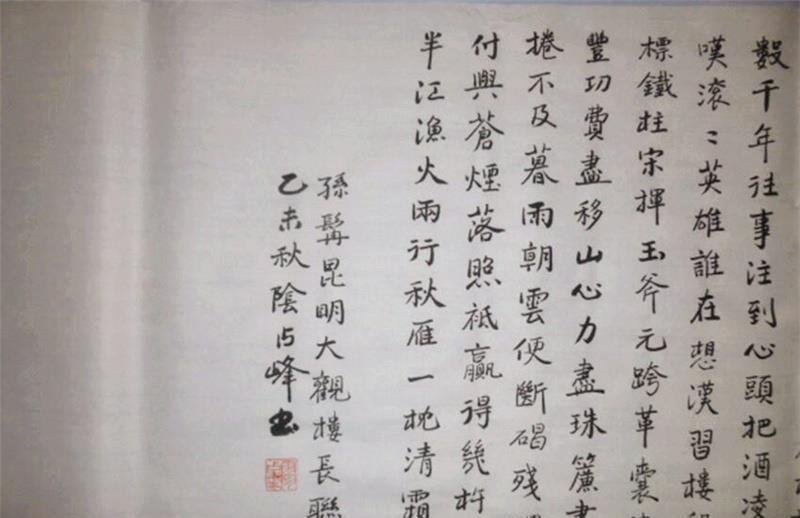 數千年往事注到心頭把酒凌
嘆滾〻英雄誰在想漢習樓
標鐵柱宋揮玉斧元跨革囊
豐功費盡移山心力盡珠簾畫
捲不及暮雨朝雲便斷碣殘
付與蒼煙落照祗贏得幾杵
半江漁火兩行秋雁一枕清霜
孫髯昆明大觀樓長聯
乙未秋陰占峰書